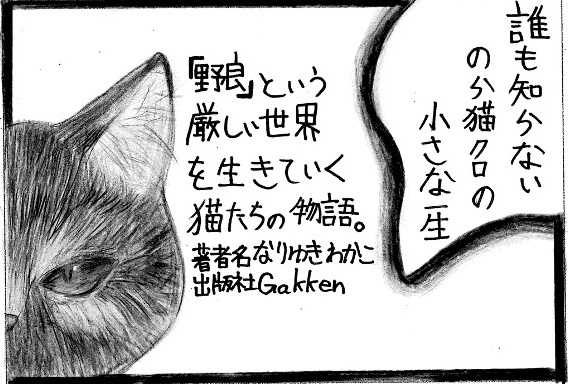 誰も知らない
のら猫クロの
小さな一生
「野良」という
厳しい世界
を生きていく
猫たちの物語。
著者名なりゆきわかこ
出版社Gakken